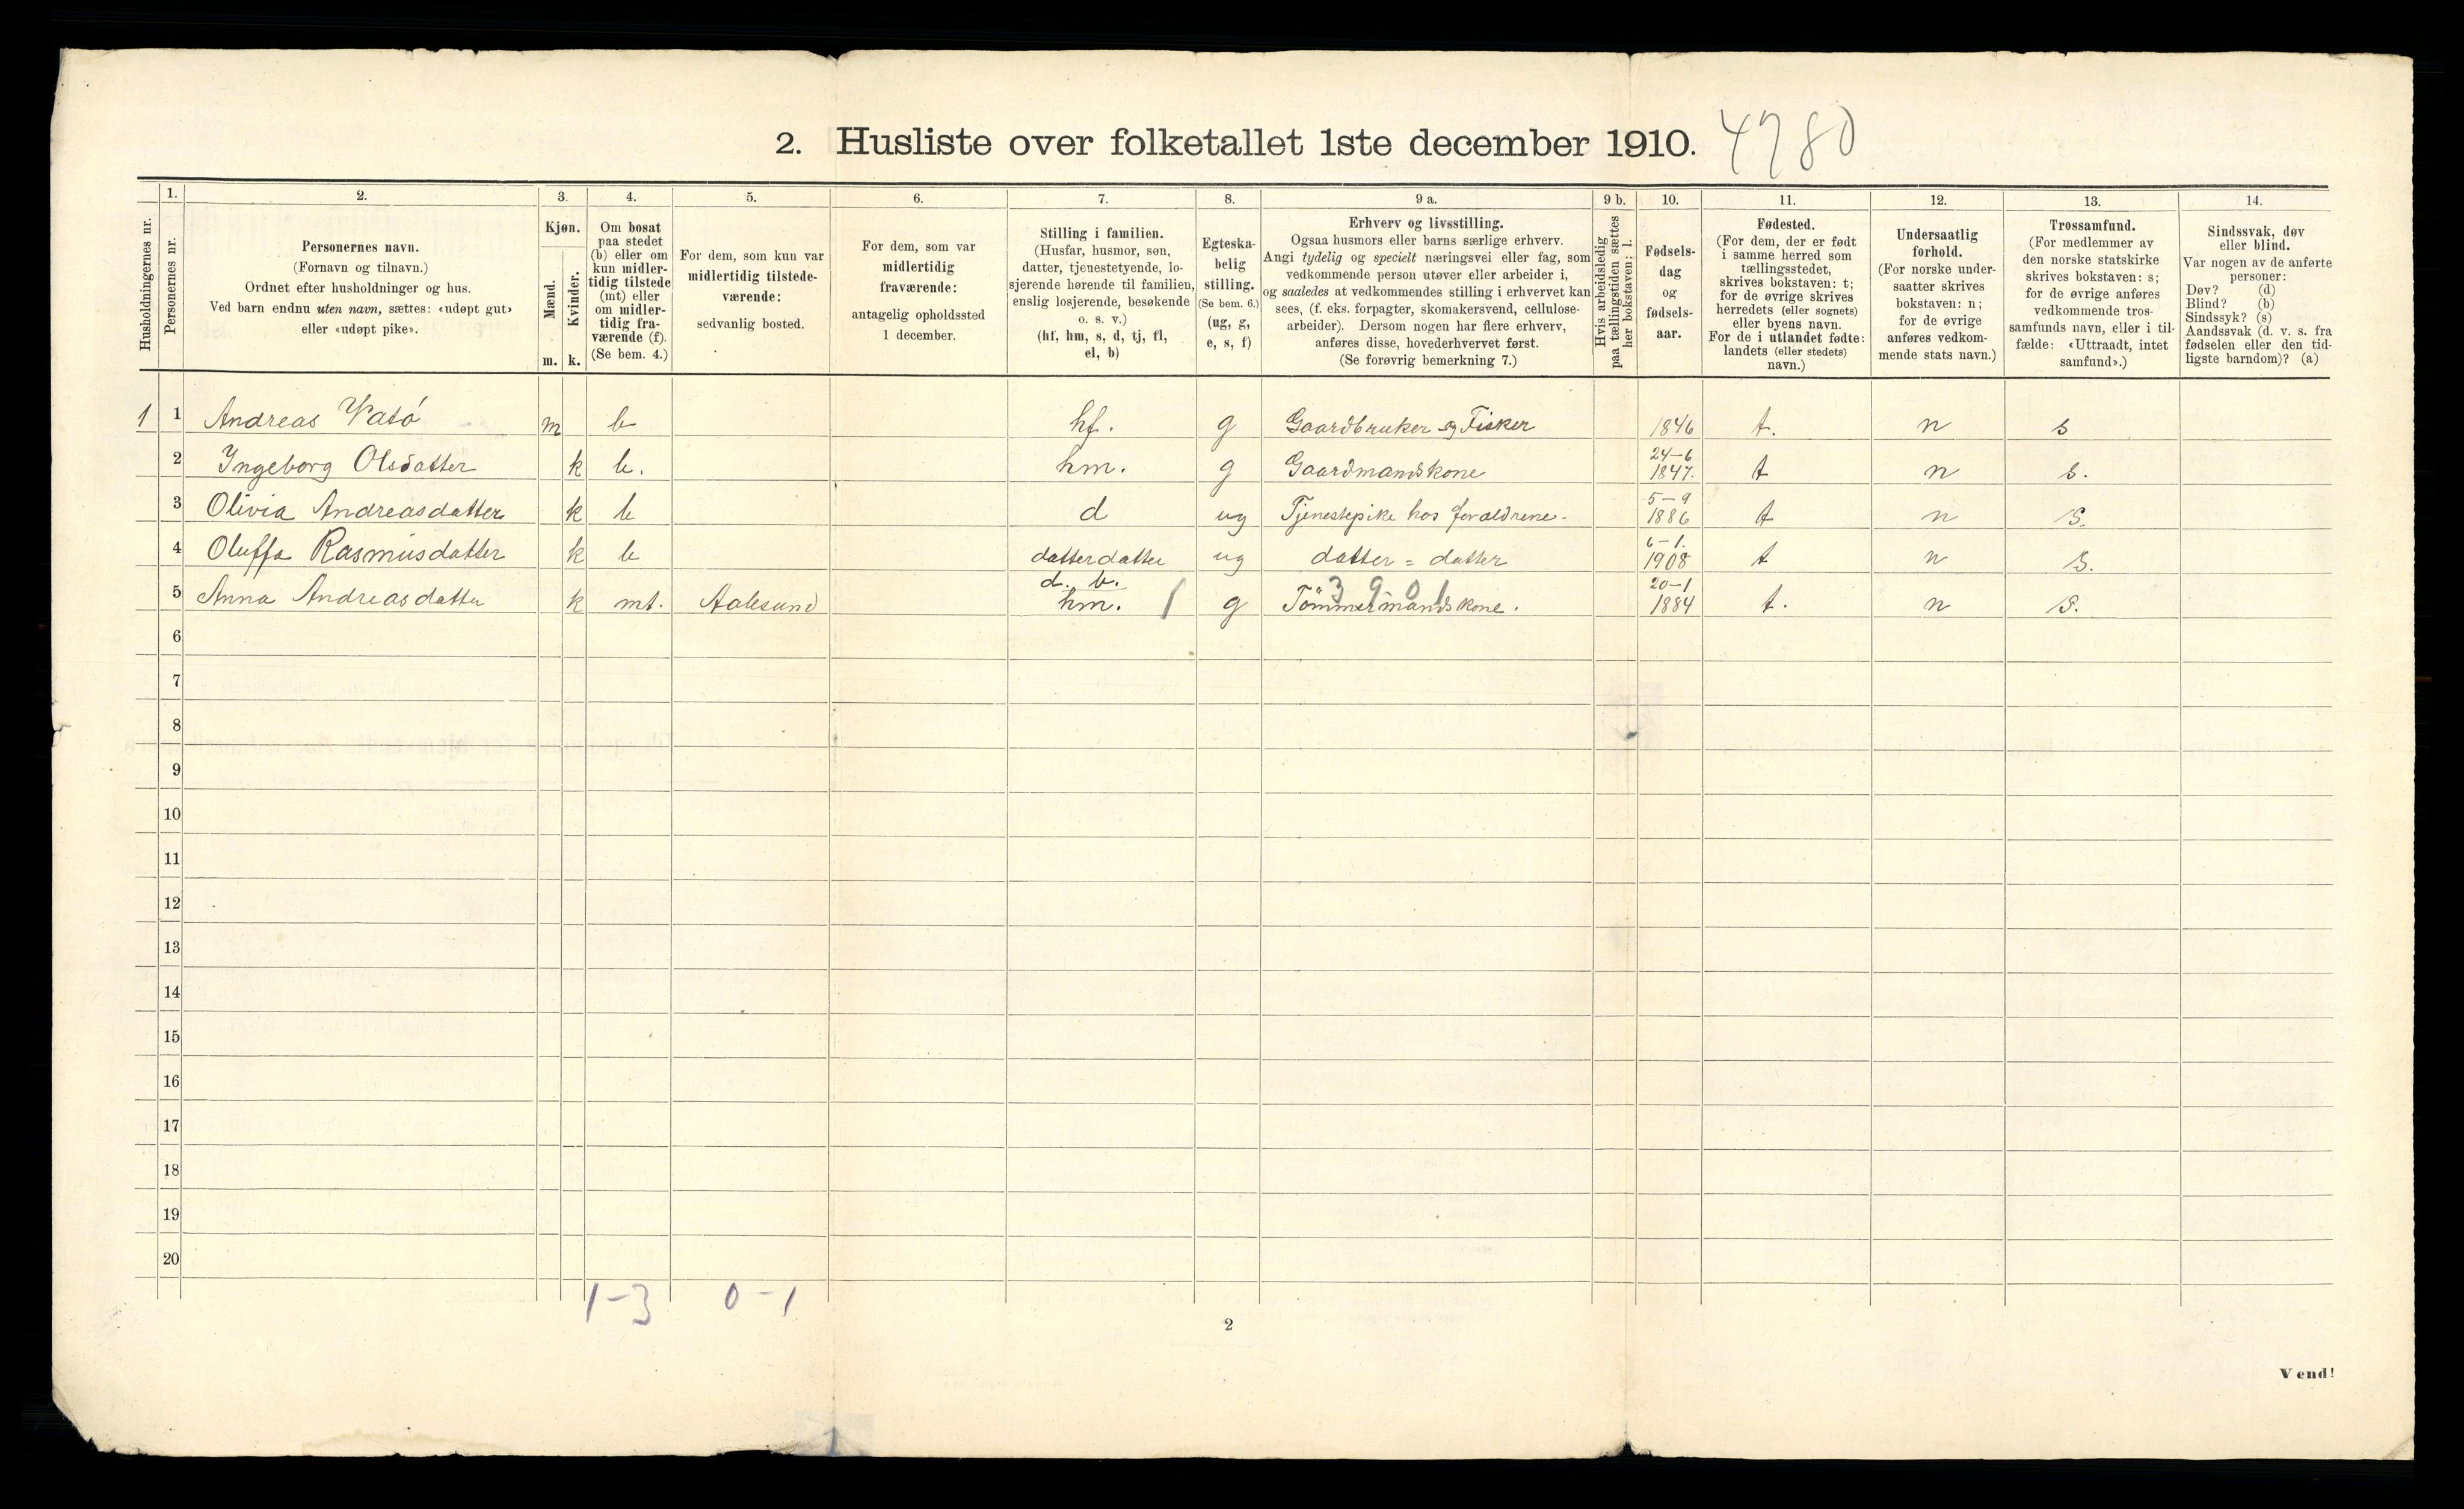 2. Husliste over folketallet 1ste december 1910. 4780
Husholdningernes nr.
1.
Personernes nr.
2.
Personernes navn.
(Fornavn og tilnavn.)
Ordnet efter husholdninger og hus.
Ved barn endnu uten navn, sættes: «udøpt gut»
eller «udøpt pike».
3.
Kjøn.
Mænd.
m.
Kvinder.
k.
4.
Om bosat
paa stedet
(b) eller om
kun midler-
tidig tilstede
(mt) eller
om midler-
tidig fra-
værende (f).
(Se bem. 4.)
5.
For dem, som kun var
midlertidig tilstede-
værende:
sedvanlig bosted.
6.
For dem, som var
midlertidig
fraværende:
antagelig opholdssted
1 december.
7.
Stilling i familien.
(Husfar, husmor, søn,
datter, tjenestetyende, lo-
sjerende hørende til familien,
enslig losjerende, besøkende
o. s. v.)
(hf, hm, s, d, tj, fl,
el, b)
8.
Egteska-
belig
stilling.
(Se bem. 6.)
(ug, g,
e, s, f)
9 a.
Erhverv og livsstilling.
Ogsaa husmors eller barns særlige erhverv.
Angi tydelig og specielt næringsvei eller fag, som
vedkommende person utøver eller arbeider i,
og saaledes at vedkommendes stilling i erhvervet kan
sees, (f. eks. forpagter, skomakersvend, cellulose-
arbeider). Dersom nogen har flere erhverv,
anføres disse, hovederhvervet først.
(Se forøvrig bemerkning 7.)
9 b.
Hvis arbeidsledig
paa tællingstiden sættes
her bokstaven: l.
10.
Fødsels-
dag
og
fødsels-
aar.
11.
Fødested.
(For dem, der er født
i samme herred som
tællingsstedet,
skrives bokstaven: t;
for de øvrige skrives
herredets (eller sognets)
eller byens navn.
For de i utlandet fødte:
landets (eller stedets)
navn.)
12.
Undersaatlig
forhold.
(For norske under-
saatter skrives
bokstaven: n;
for de øvrige
anføres vedkom-
mende stats navn.)
13.
Trossamfund.
(For medlemmer av
den norske statskirke
skrives bokstaven: s;
for de øvrige anføres
vedkommende tros-
samfunds navn, eller i til-
fælde: «Uttraadt, intet
samfund».)
14.
Sindssvak, døv
eller blind.
Var nogen av de anførte
personer:
Døv? (d)
Blind? (b)
Sindssyk? (s)
Aandssvak (d. v. s. fra
fødselen eller den tid-
ligste barndom)? (a)
1 1 Andreas Vatö m b hf. g Gaardbruker og Fisker 1846 t. n s
2 Ingeborg Olsdatter k b. hm. g Gaardmandskone 24-6 1847. t n s.
3 Olivia Andreasdatter k b d ug Tjenestepike hos forældrene. 5-9 1886 t n S.
4 Oluffa Rasmusdatter k b datterdatter ug datter = datter 6-1. 1908 t n S.
5 Anna Andreasdatter k mt. Aalesund d. b. hm. 1 g Tömmermandskone. 3901 20-1 1884 t. n S.
6
7
8
9
10
11
12
13
14
15
16
17
18
19
20
1-3 0-1
2
Vend!